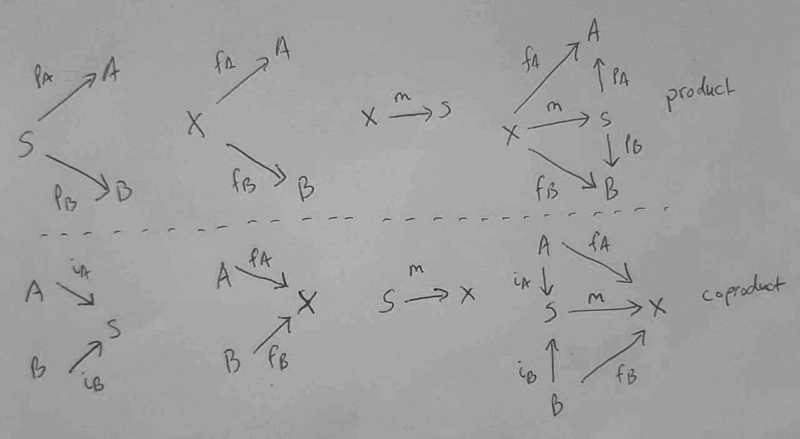 A
pA
S
pB
B
A
fA
X
fB
B
X m S
A
fA
pA
X m S
pB
fB
B
product
A
iA
S
B
iB
A
fA
X
B
fB
m
S X
A
fA
iA
S m X
iB
fB
B
coproduct